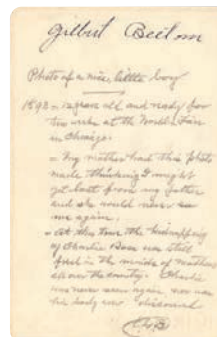 Gilbert Beeton
Photo of a nice, little boy
1893 = 12 years old and ready for
two weeks at the World's Fair
in Chicago.
= My mother had this photo
made thinking I might
get lost from my father
and she would never see
me again.
= At this time the kidnapping
of Charlie Ross was still
fresh in the minds of mothers
all over the country. Charlie
was never seen again nor was
his body ever discovered